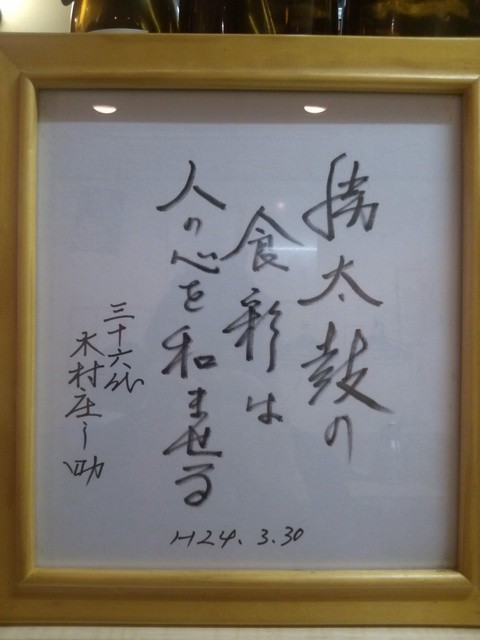 勝太鼓の
食彩は
人の心を和ませる
三十六代
木村庄之助
H24.3.30